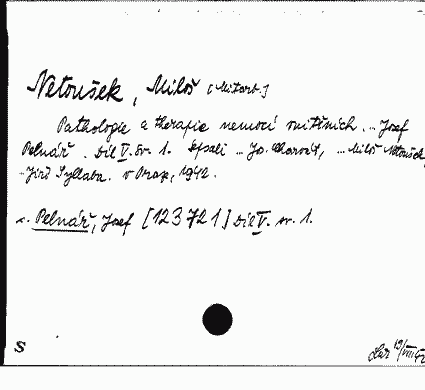 Netoušek, Miloš [Mitarb.]
Pathologie a therapie nemocí vnitřních. ... Josef
Pelnář. Díl V. Sv. 1. Sepsali ... Jos. Charvát, ... Miloš Netoušek,
... Jiří Syllaba. V Praze, 1942.
s. Pelnář, Josef [123721] díl V. sv. 1.
S
19/VIII 42